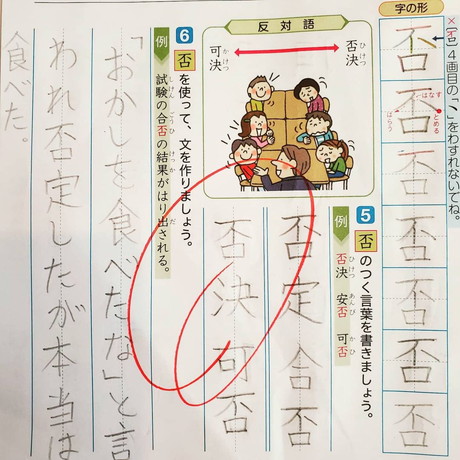 字の形
×(否)4画目の「丶」をわすれないでね。
否
否
はなす
とめる
はらう
否
否
否
否
5
否のつく言葉を書きましょう。
例
否決 安否 可否
ひけつ あんぴ かひ
否定 合否
否決 可否
反対語
否決
ひけつ
可決
かけつ
6
否を使って、文を作りましょう。
例
試験の合否の結果がはり出される。
しけん ごうひ けっか だ
「おかしを食べたな」と言
われ否定したが本当は
食べた。